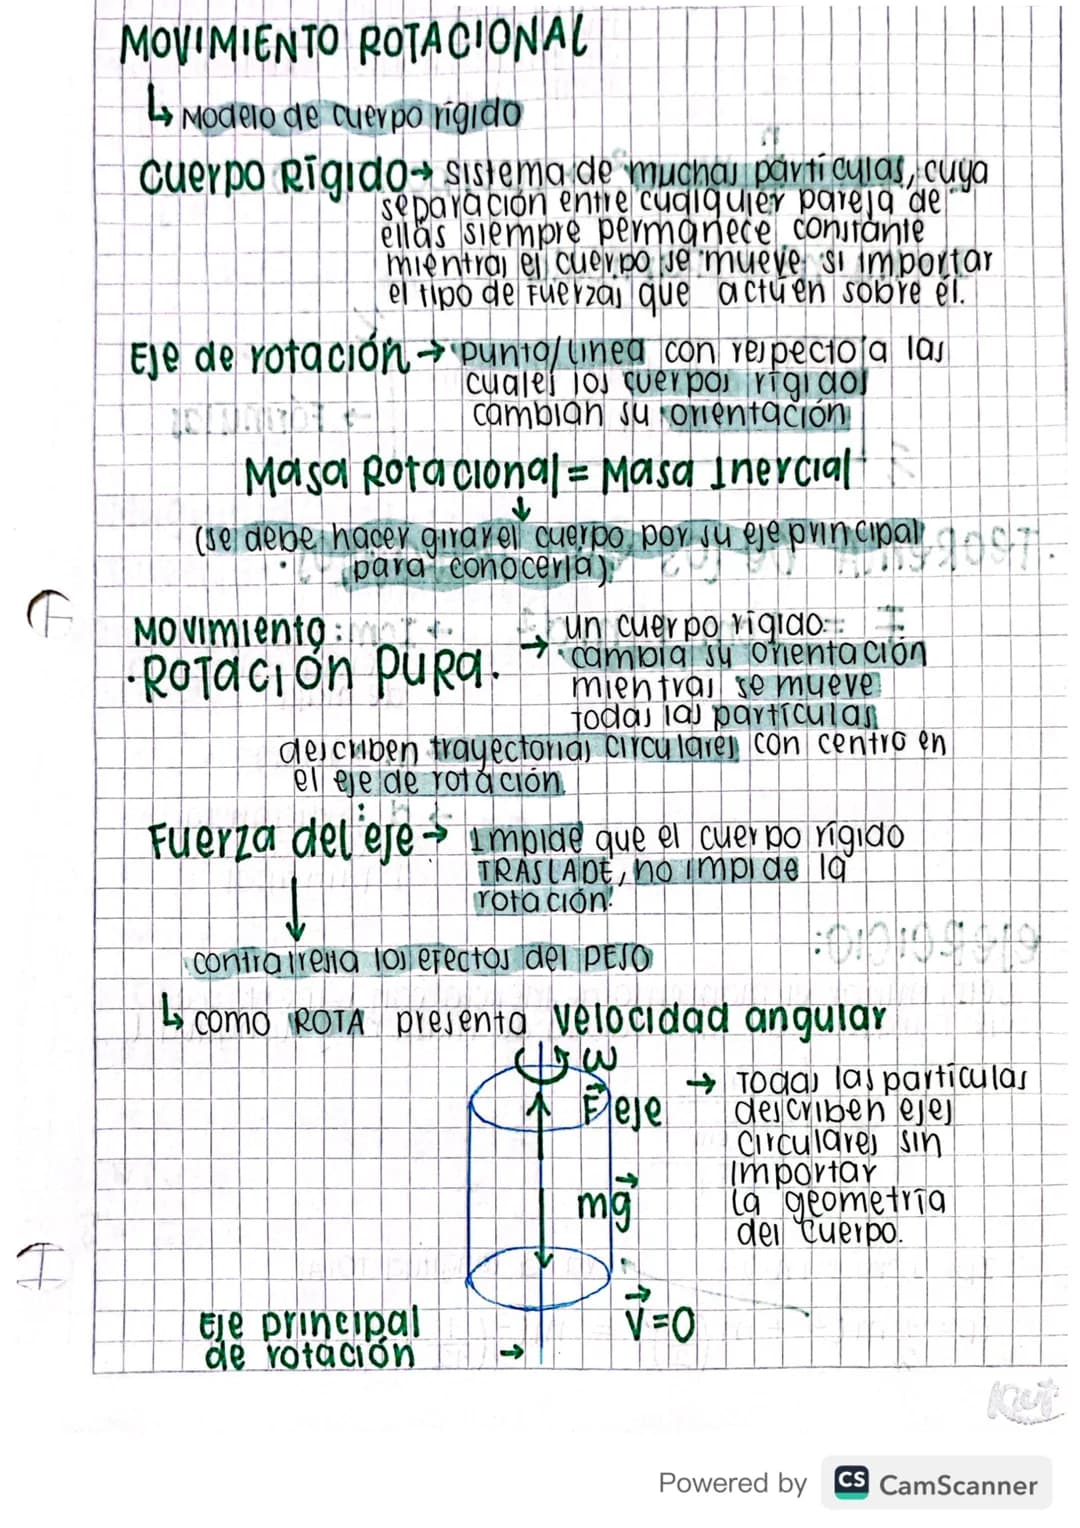 MOVIMIENTO ROTACIONAL
↳ Modelo de cuerpo rígido
Cuerpo Rígido → sistema de muchas partículas, cuya
separación entre cualquier pareja de
ellas siempre permanece constante
mientras el cuerpo se mueve si importar
el tipo de fuerzas que actúen sobre él.
Eje de rotación → punto/línea con respecto a las
cuales los cuerpos rígidos
cambian su orientación
Masa Rotacional = Masa Inercial
↓
(se debe hacer girar el cuerpo por su eje principal
para conocerla)
Movimiento:
·ROTACIÓN PURA.
→ un cuerpo rígido
cambia su orientación
mientras se mueve
todas las partículas
describen trayectorias circulares con centro en
el eje de rotación.
Fuerza del eje → Impide que el cuerpo rígido
TRASLADE, no impide la
rotación.
↓
contrarresta los efectos del PESO
↳ como ROTA presenta velocidad angular
ω
F eje
mg
V=0
→ Todas las partículas
describen ejes
circulares sin
importar
la geometría
del cuerpo.
Eje principal
de rotación →
Powered by CS CamScanner